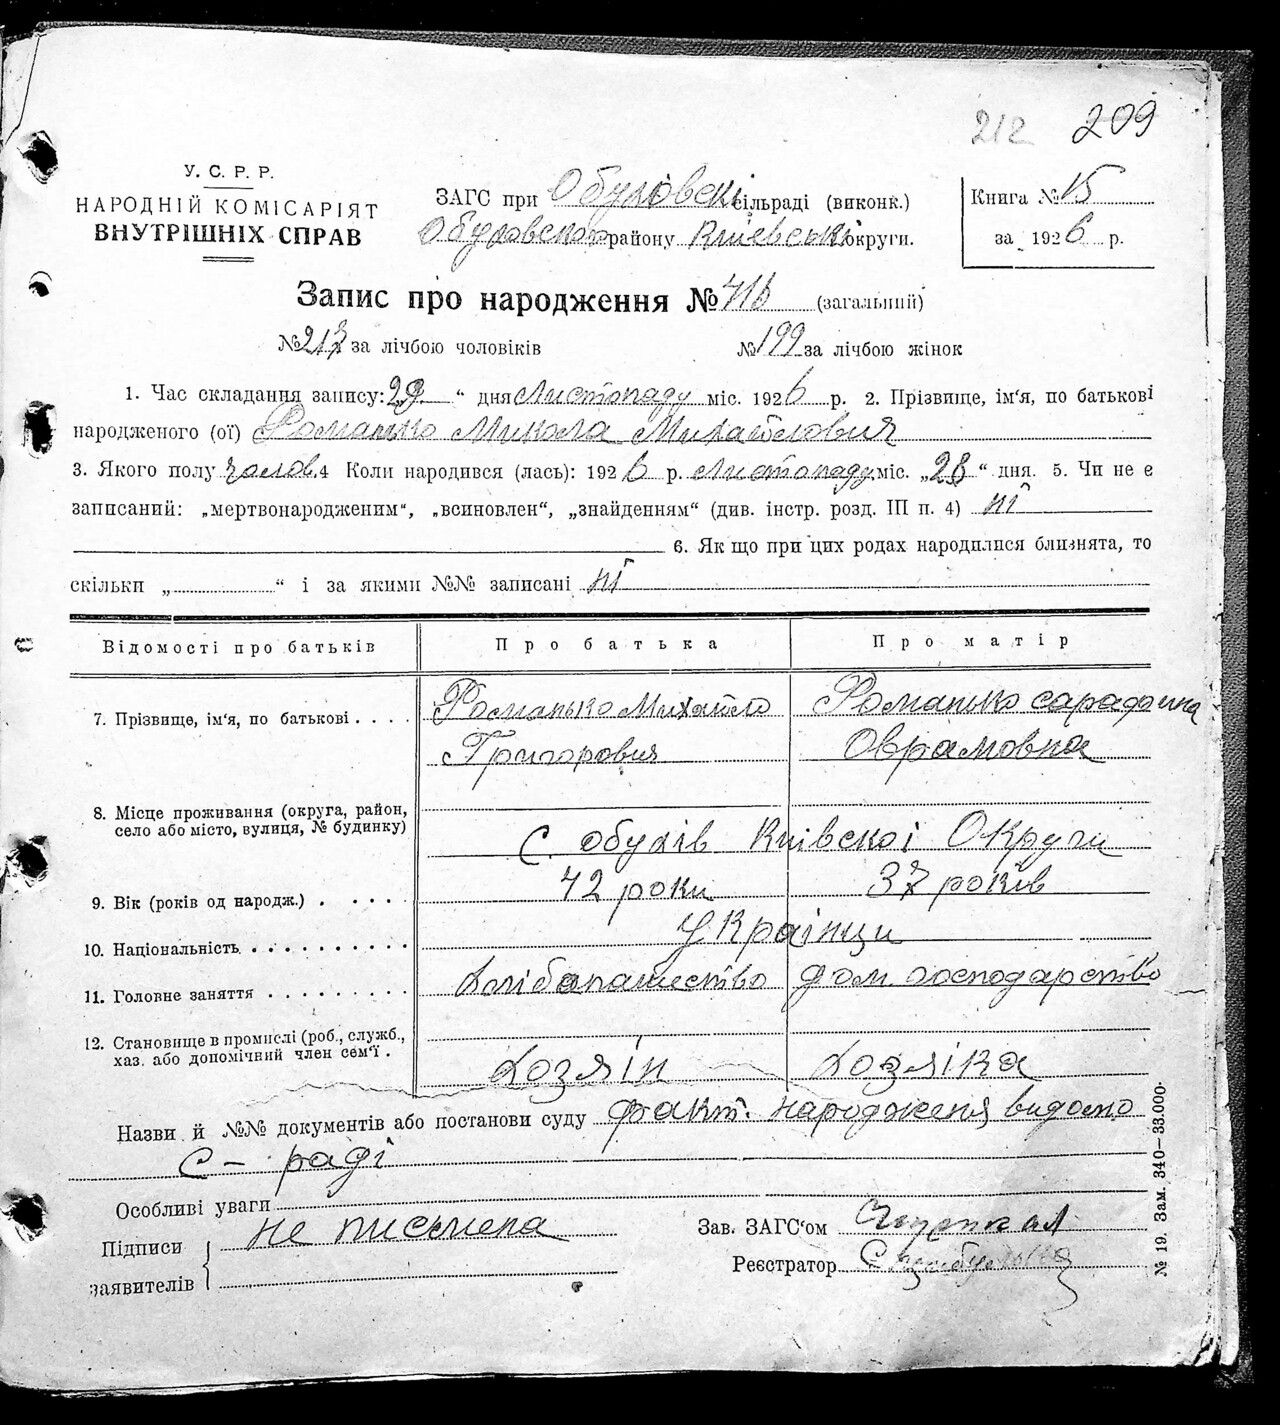 212 209
У. С. Р. Р.
НАРОДНІЙ КОМІСАРІЯТ
ВНУТРІШНІХ СПРАВ
ЗАГС при Обухівскі сільраді (виконк.)
Обуховского району Київській округи.
Книга № 15
за 1926 р.
Запис про народження № 416 (загальний)
№ 217 за лічбою чоловіків № 199 за лічбою жінок
1. Час складання запису: 29 “ дня Листопаду міс. 1926 р. 2. Прізвище, ім'я, по батькові
народженого (ої) Романько Микола Михайлович
3. Якого полу чолов. 4 Коли народився (лась): 1926 р. Листопаду міс. „28“ дня. 5. Чи не є
записаний: „мертвонародженим“, „всиновлен“, „знайденням“ (див. інстр. розд. III п. 4) ні
6. Як що при цих родах народилися близнята, то
скільки „ “ і за якими №№ записані ні
Відомості про батьків Про батька Про матір
7. Прізвище, ім'я, по батькові . . . . Романько Михайло Романько Сарафина
Григорович Оврамовна
8. Місце проживання (округа, район,
село або місто, вулиця, № будинку)
с. Обухів Київскоі Округи
9. Вік (років од народж.) . . . . . 42 роки 37 років
10. Національність . . . . . . . . . . Украінци
11. Головне заняття . . . . . . . . . Хлібопашество Дом. господарство
12. Становище в промислі (роб., служб.,
хаз. або допомічний член сем'ї .
Хозяін Хозяіка
Назви й №№ документів або постанови суду факт. народженя видомо
С – раді
Особливі уваги
Підписи не писмена Зав. ЗАГС'ом
заявителів Реєстратор
№ 19. Зам. 340—33.000.